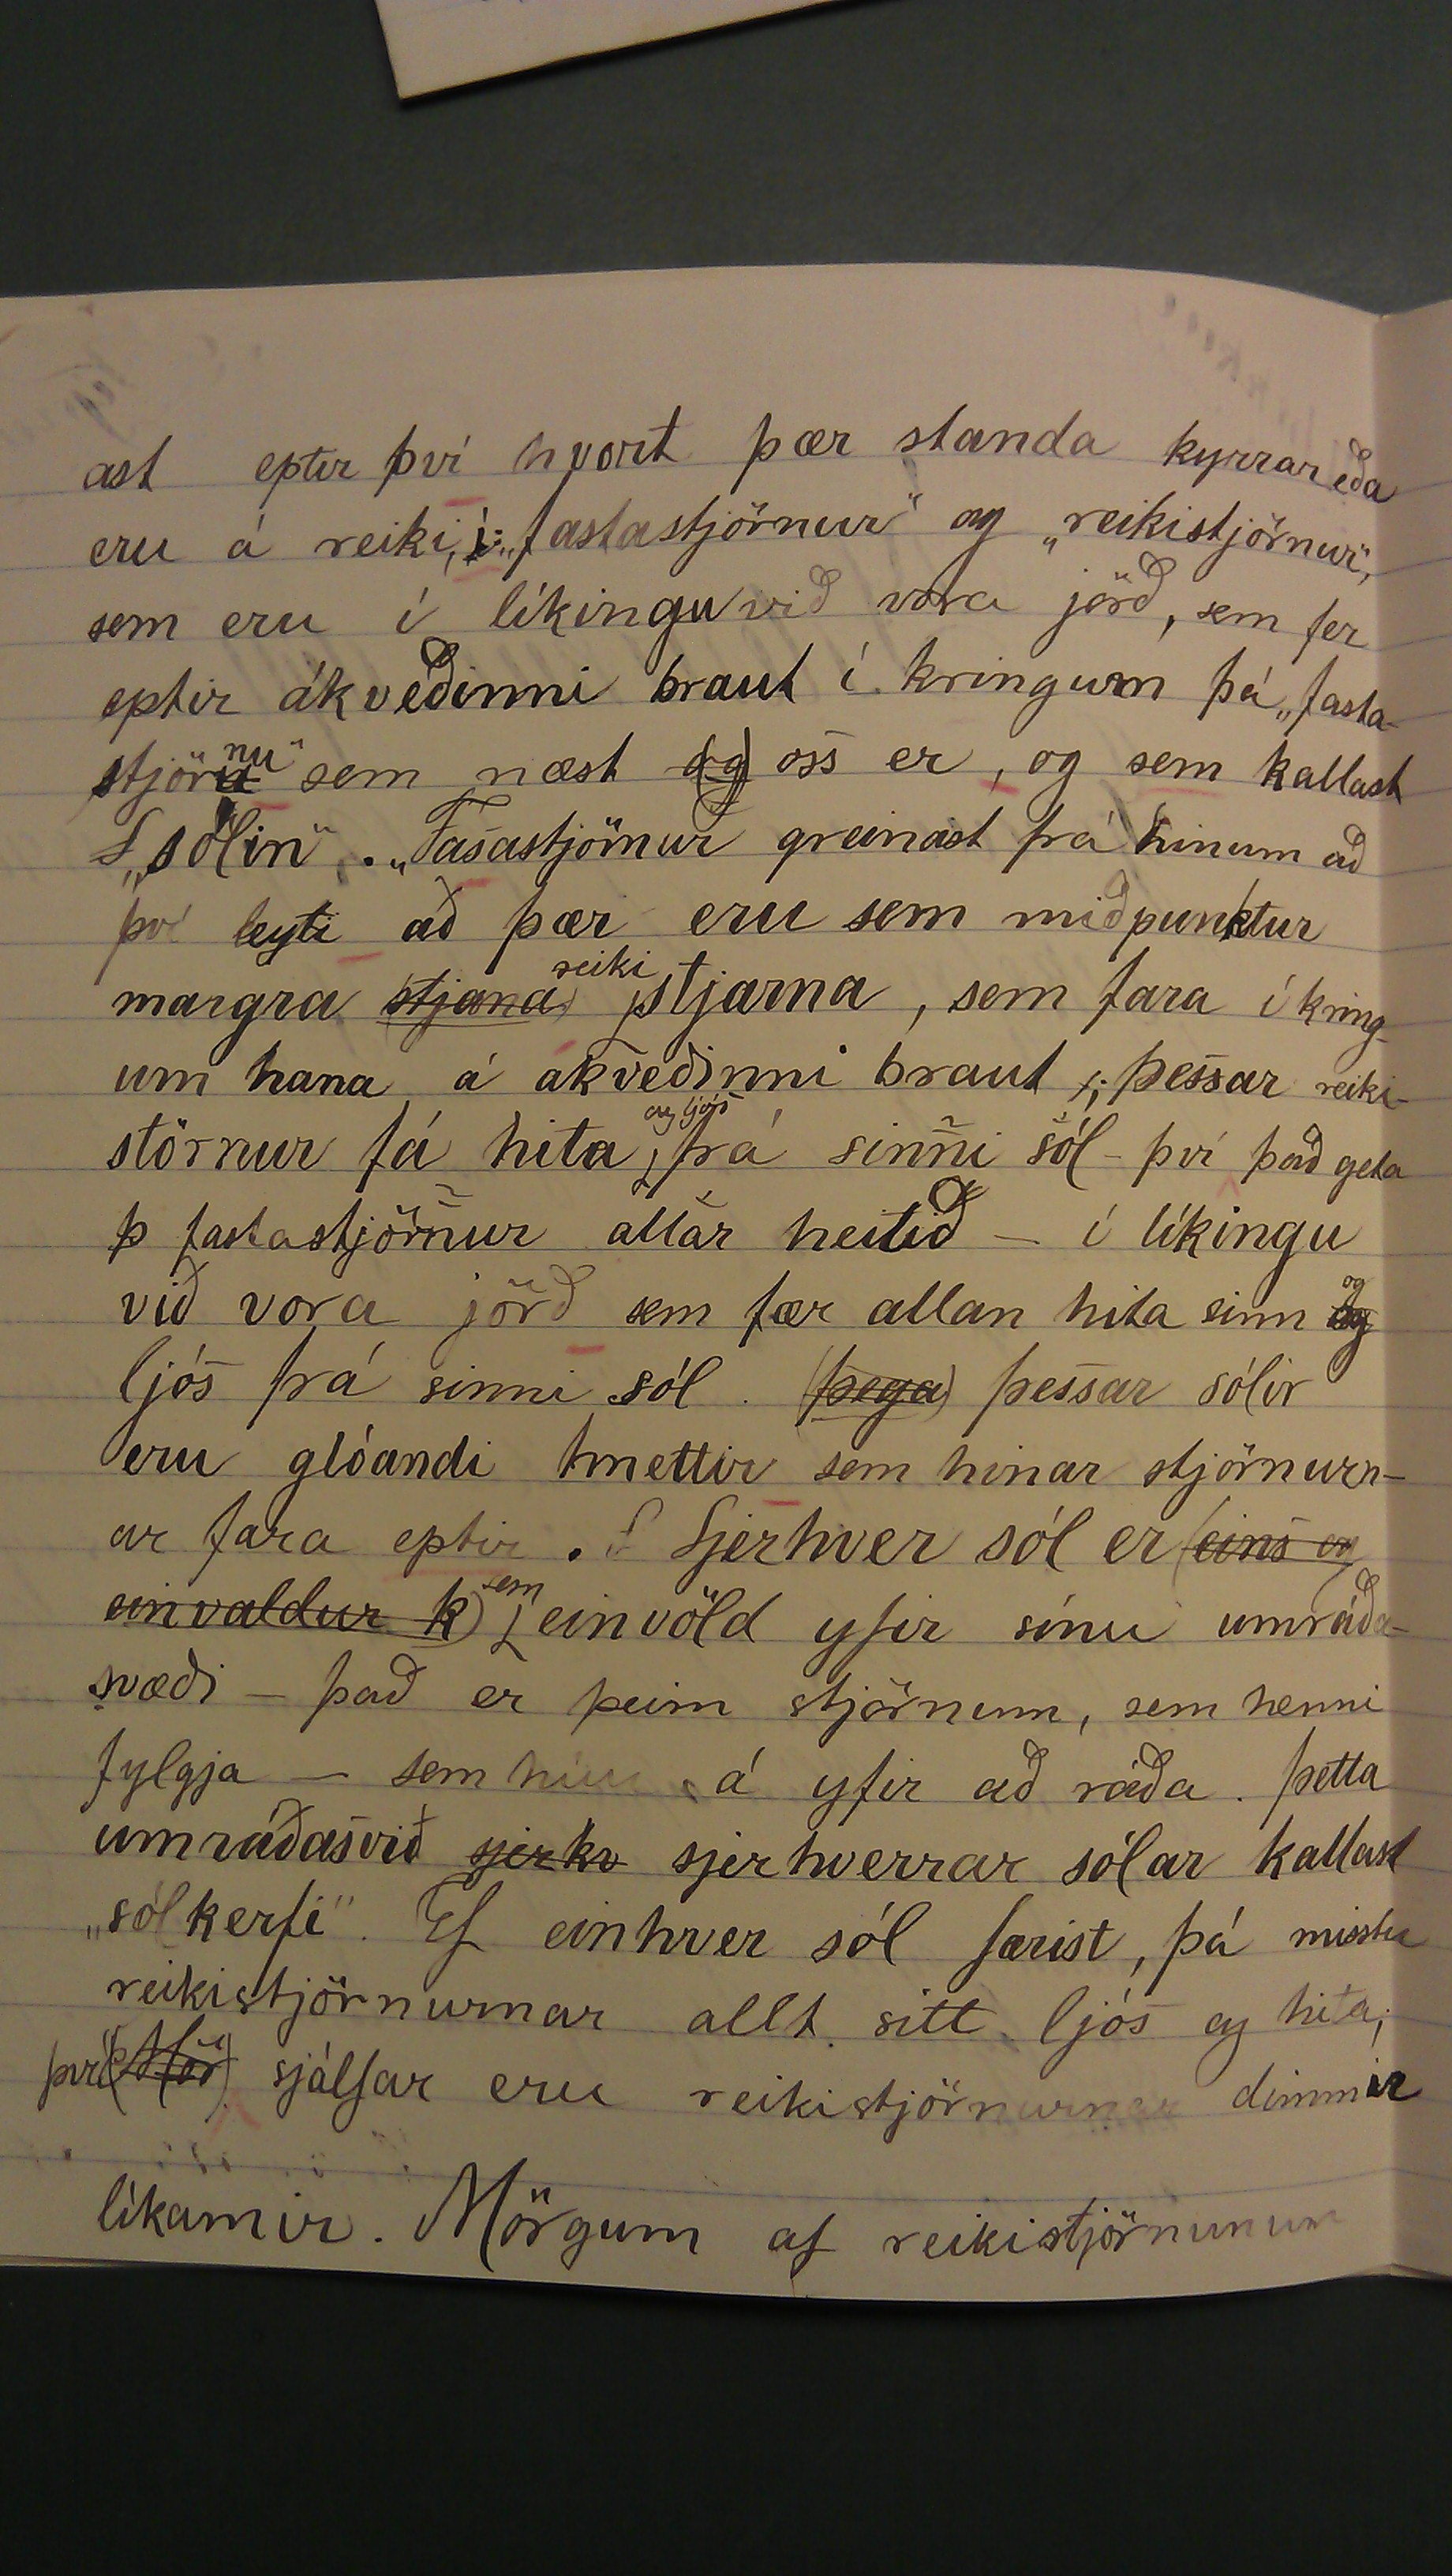 ast eptir því hvort þær standa kyrrar eða
eru á reiki, í „fastastjörnur“ og „reikistjörnur“,
sem eru í líkingu við vora jörð, sem fer
eptir ákveðinni braut í kringum þá „fasta-
stjörnu“ sem næst og oss er, og sem kallast
„sólin“. „Fasastjörnur greinast frá hinum að
því leyti að þær eru sem miðpunktur
margra stjana reiki stjarna, sem fara í kring-
um hana á ákveðinni braut; þessar reiki-
störnur fá hita og ljós frá sinni sól - því það geta
þ fastastjörnur allar heitið – í líkingu
við vora jörð sem fær allan hita sinn og
ljós frá sinni sól. (þega) þessar sólir
eru glóandi hnettir sem hinar stjörnurn-
ar fara eptir. Sjerhver sól er (eins og
einvaldur k) sem einvöld yfir sínu umráða-
svæði – það er þeim stjörnum, sem henni
fylgja – sem hún á yfir að ráða. Þetta
umráðasvið sjerhv sjerhverrar sólar kallast
„sólkerfi“. Ef einhver sól færist, þá misstu
reikistjörnurnar allt sitt ljós og hita,
því sjálfar eru reikistjörnurnar dimmir
líkamir. Mörgum af reikistjörnunum